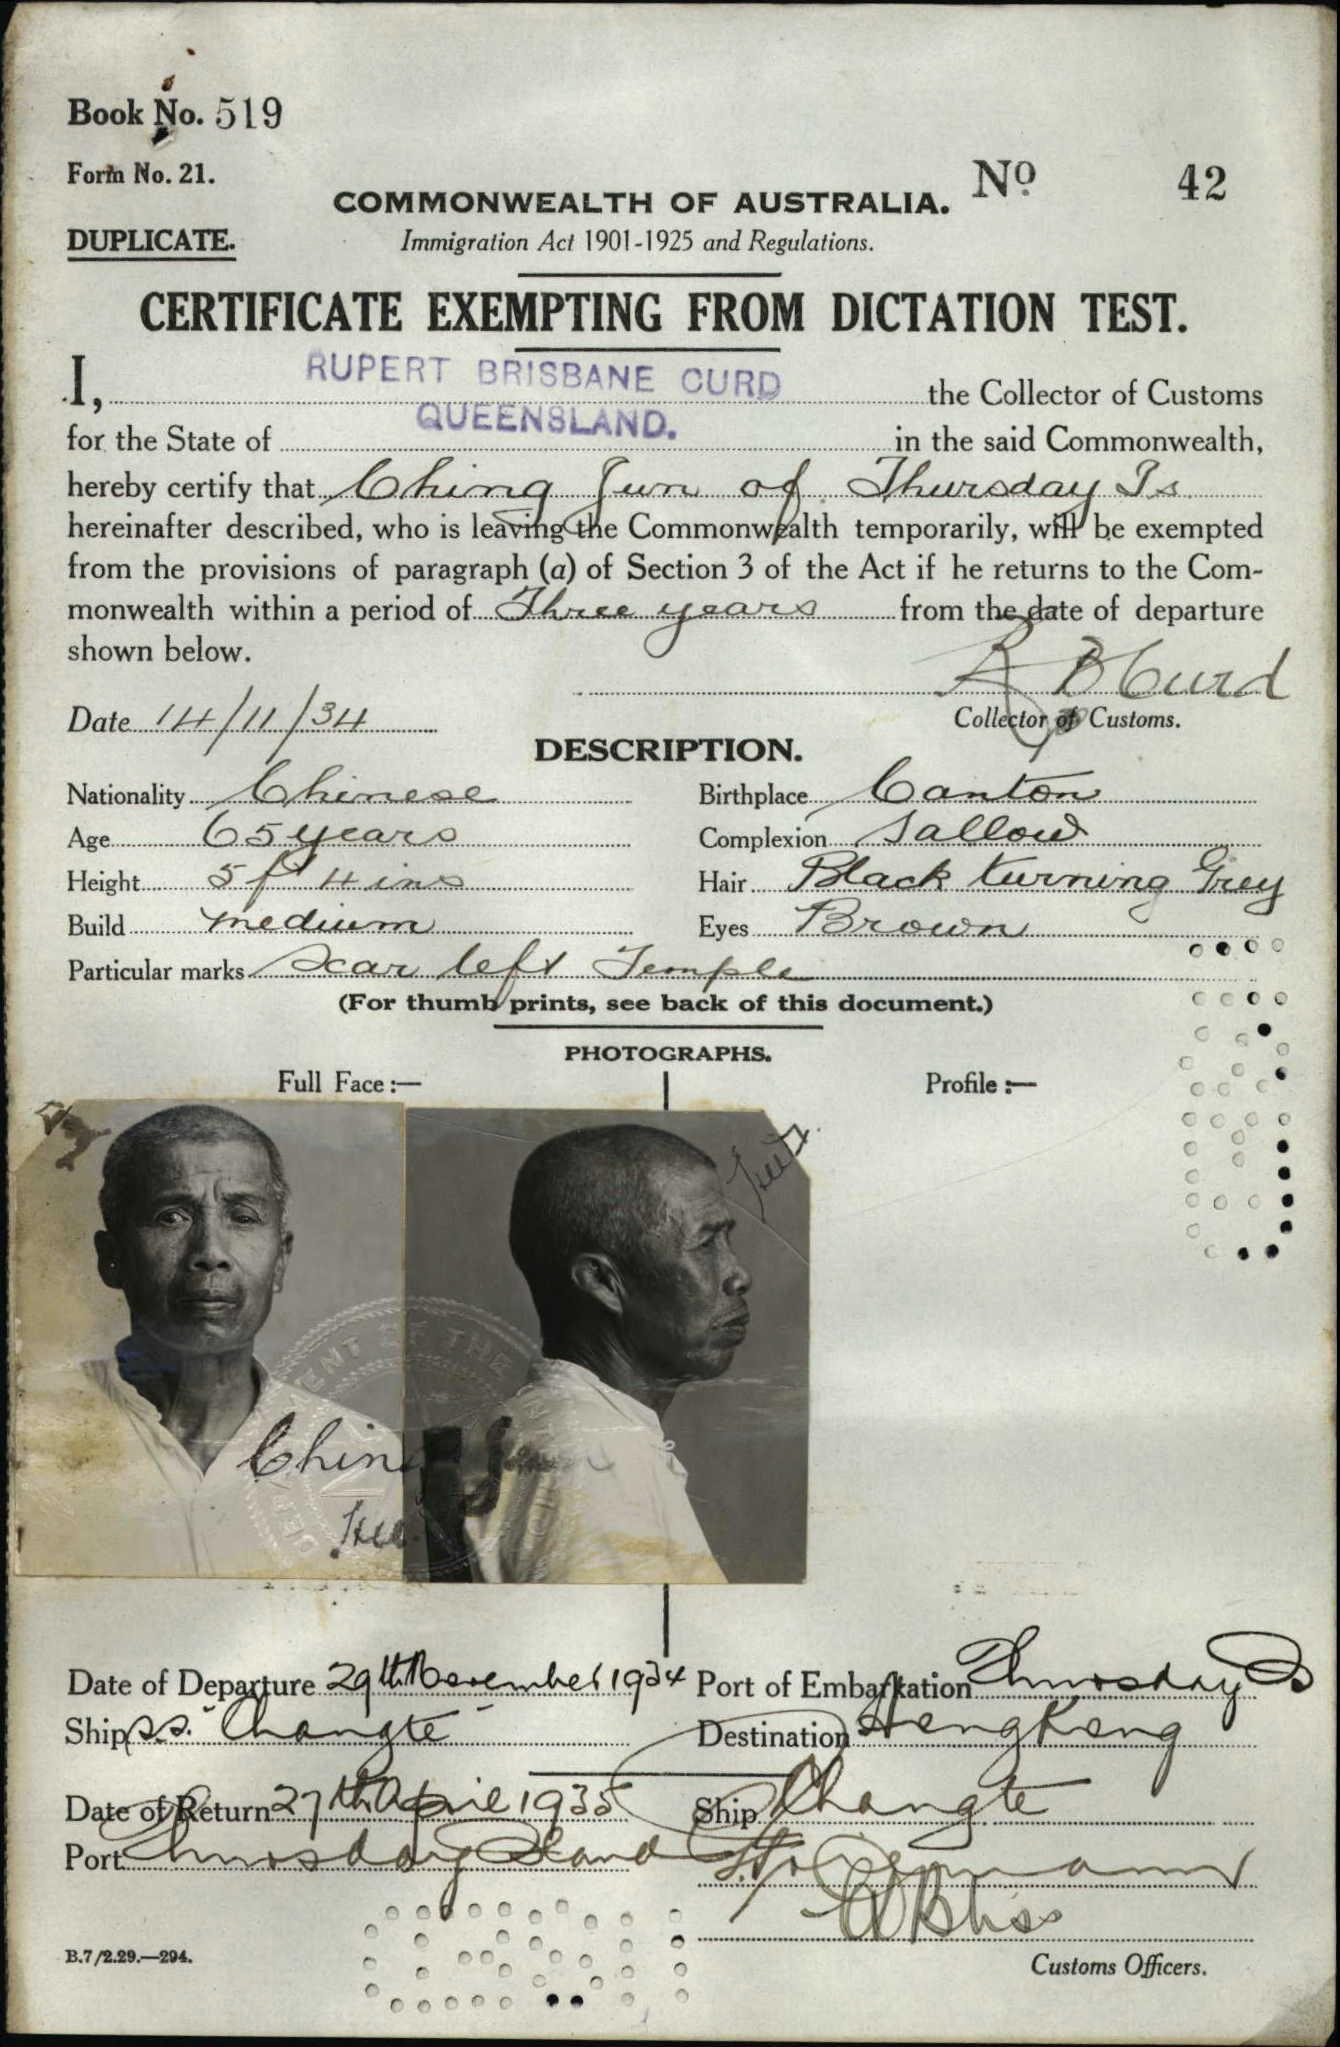 Book No. 519
Form No. 21.
COMMONWEALTH OF AUSTRALIA. No. 42
DUPLICATE. Immigration Act 1901-1925 and Regulations.
CERTIFICATE EXEMPTING FROM DICTATION TEST.
I, RUPERT BRISBANE CURD the Collector of Customs
for the State of QUEENSLAND. in the said Commonwealth,
hereby certify that Ching Jun of Thursday Is
hereinafter described, who is leaving the Commonwealth temporarily, will be exempted
from the provisions of paragraph (a) of Section 3 of the Act if he returns to the Com-
monwealth within a period of Three years from the date of departure
shown below.
R B Curd
Date 14/11/34 Collector of Customs.
DESCRIPTION.
Nationality Chinese Birthplace Canton
Age 65 years Complexion Sallow
Height 5 ft 4 ins Hair Black turning Grey
Build medium Eyes Brown
Particular marks Scar left Temple
(For thumb prints, see back of this document.)
PHOTOGRAPHS.
Full Face :— Profile :—
Ching
Date of Departure 29th November 1934 Port of Embarkation Thursday Is
Ship s.s. "Changte" Destination HongKong
Date of Return 27th April 1935 Ship Changte
Port Thursday Island
Bliss
B.7/2.29.—294. Customs Officers.